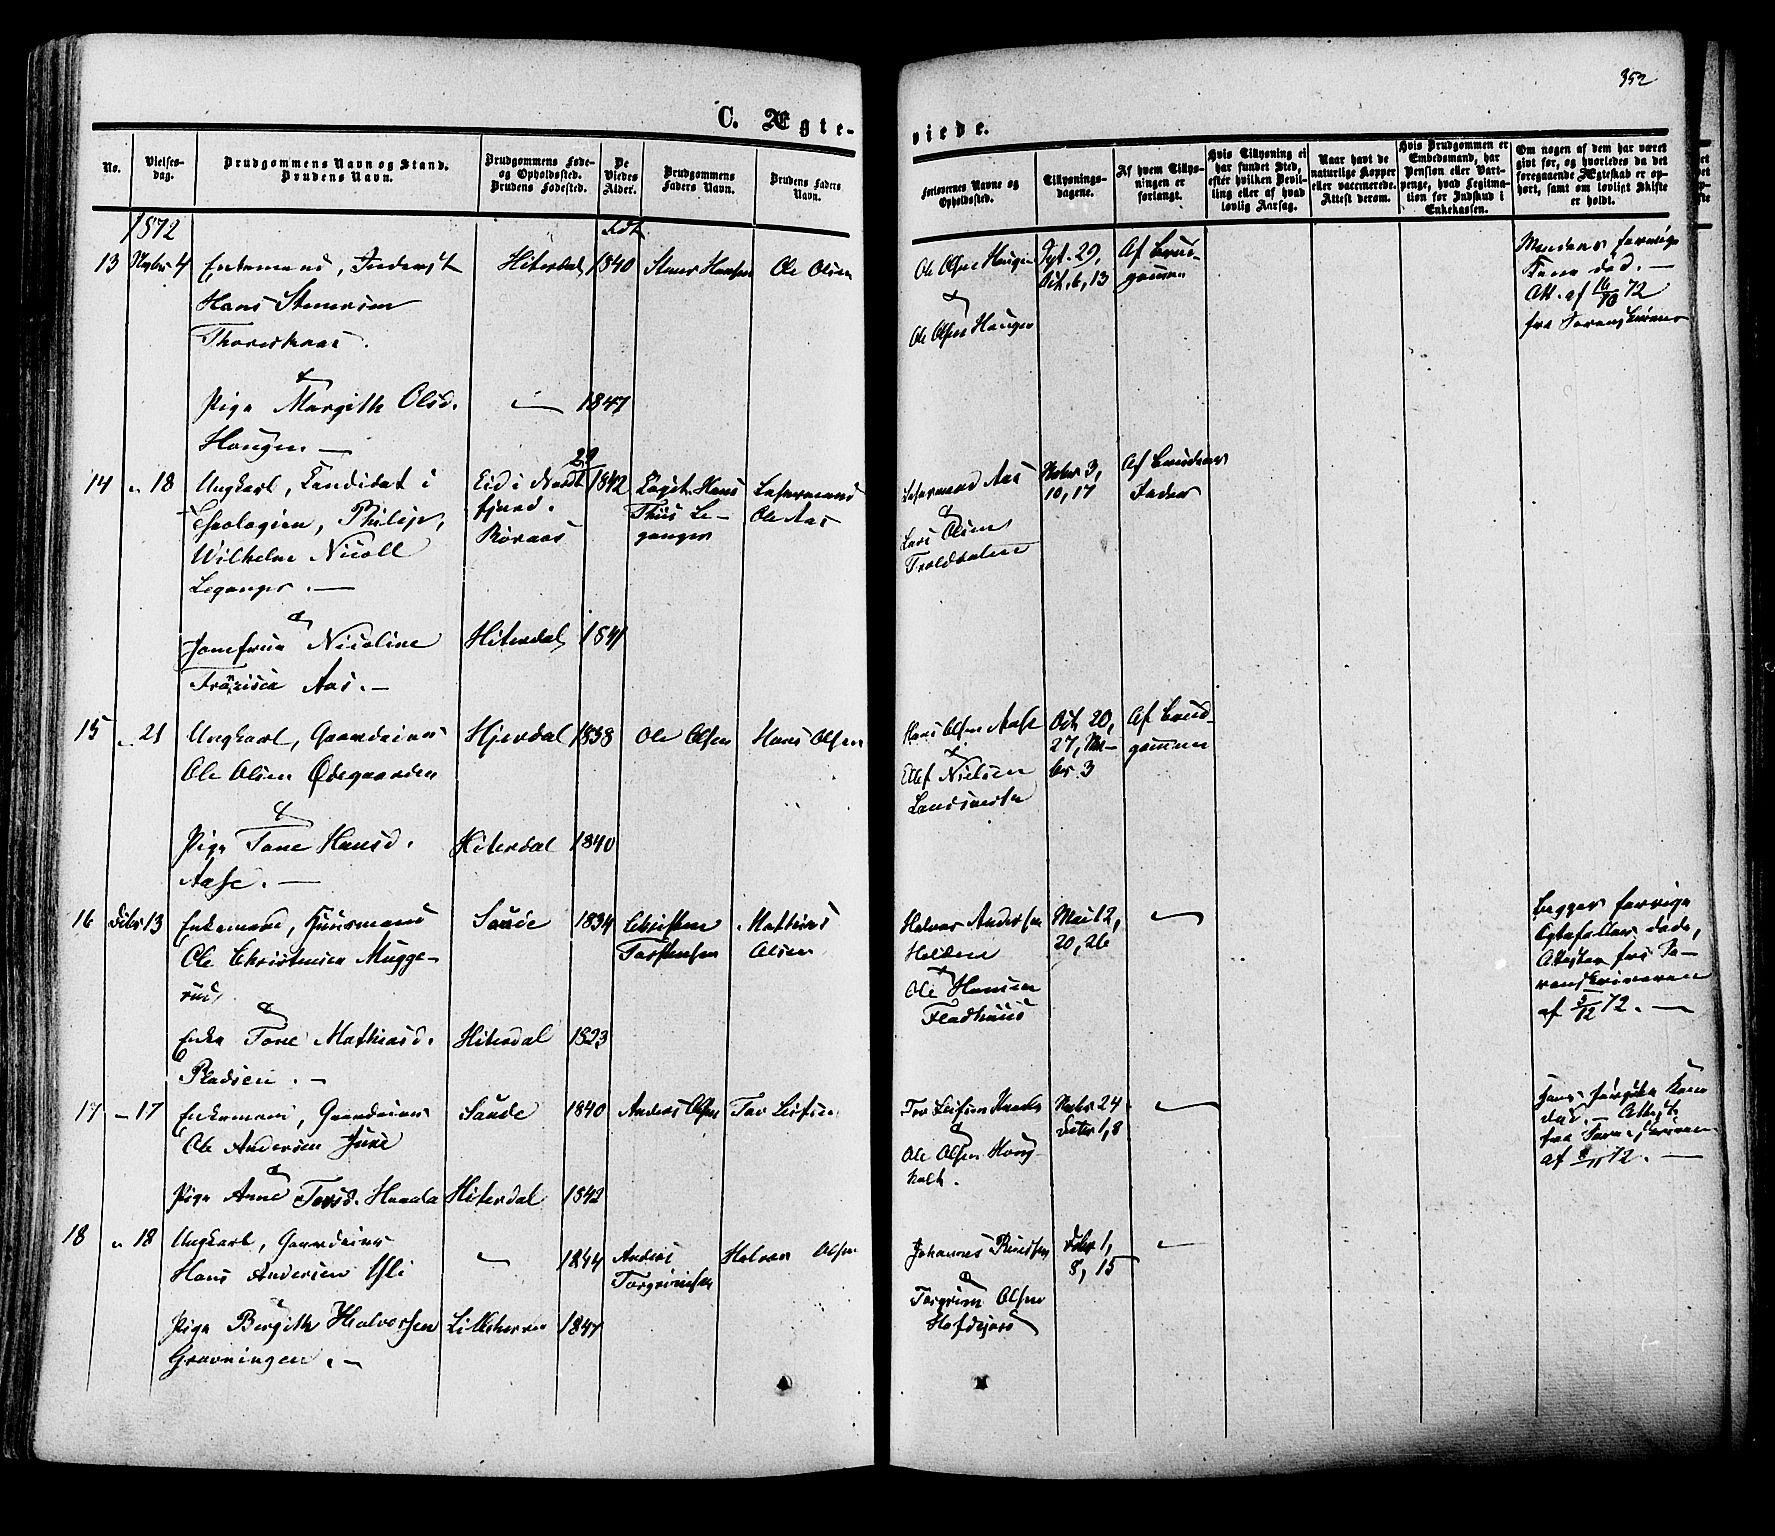 352
C. Ægteviede.
No.
Vielses-
dag.
Brudgommens Navn og Stand.
Brudens Navn.
Brudgommens Føde-
og Opholdssted.
Brudens Fødested.
De
Viedes
Alder.
Brudgommens
Faders Navn.
Brudens Faders
Navn.
Forlovernes Navne og
Opholdssted.
Tillysnings-
dagene.
Af hvem Tillys-
ningen er
forlangt.
Hvis Tillysning ei
har fundet Sted,
efter hvilken Bevil-
ling eller af hvad
lovlig Aarsag.
Naar havt de
naturlige Kopper
eller vaccinerede.
Attest derom.
Hvis Brudgommen er
Embedsmand, har
Pension eller Vart-
penge, hvad Legitima-
tion for Indskud i
Enkekassen.
Om nogen af dem har været
gift før, og hvorledes da det
foregaaende Ægteskab er op-
hørt, samt om lovligt Skifte
er holdt.
1872
født
13 Novbr 4 Enkemand, Inderst Hiterdal 1840 Stener Hansen Ole Olsen
Hans Stenersen
Pige Margith Olsd. 1847
Haugen.
Ole Olsen Haugen
&
Ole Olsen Haugen
Spt. 29,
Oct. 6, 13
Af Brud-
gommen
Mandens forrige
Kone død.
Att. af 16/10 72
fra Sorenskriveren
14 " 18 Ungkarl, Candidat i
Theologien, Philip
Wilhelm Nicoll
Leganger.
Eid i Nordt-
fjord.
Røraas
29
1842
Capt. Hans
Thiis Le-
ganger
Lehnsmand
Ole Aas
&
Jomfrue Nicoline Hiterdal 1841
Aas.
Lehnsmand Aas
&
Lars Olsen
Trolddalen
Novbr 3,
10, 17
Af Brudens
Fader
15 " 21 Ungkarl, Gaardeier Hjerdal 1838 Ole Olsen Hans Olsen
Ole Olsen Ødegaarden
&
Pige Tone Hansd. Hiterdal 1840
Aase.
Hans Olsen Aase
&
Ellef Nielsen
Landsverk
Oct. 20,
27, No-
vbr. 3
Af Brud-
gommen
16 Decbr 13 Enkemand, Huusmand Saude 1834 Christen
Torstensen
Mathias
Olsen
Ole Christensen Mugge-
rud,
&
Enke Tone Mathiasd. Hiterdal 1823
Pladsen.
Halvor Andersen
Helden
&
Ole Hansen
Fladhuus
Mai 12,
20, 26
Begges forrige
Egtefæller døde,
Attester fra So-
renskriveren
af 5/12 72.
17 – 17 Enkemand, Gaardeier Saude 1840 Anders Olsen Tov Leifsen
Ole Andersen Juve
&
Pige Anne Tovsd. Haavla Hiterdal 1842
Tov Leifsen
&
Ole Olsen Haug-
holt.
Novbr 24
Decbr 1, 8
Hans forrige Kone
død. Attest
fra Sorenskriveren
af 8/11 72.
18 " 18 Ungkarl, Gaardeier 1844 Anders
Torgrimsen
Halvor Olsen
Hans Andersen Yli
&
Pige Birgith Halvorsen Lilleherred 1847
Gravningen.
Johannes Knudsen
&
Torgrim Olsen
Decbr 1,
8, 15